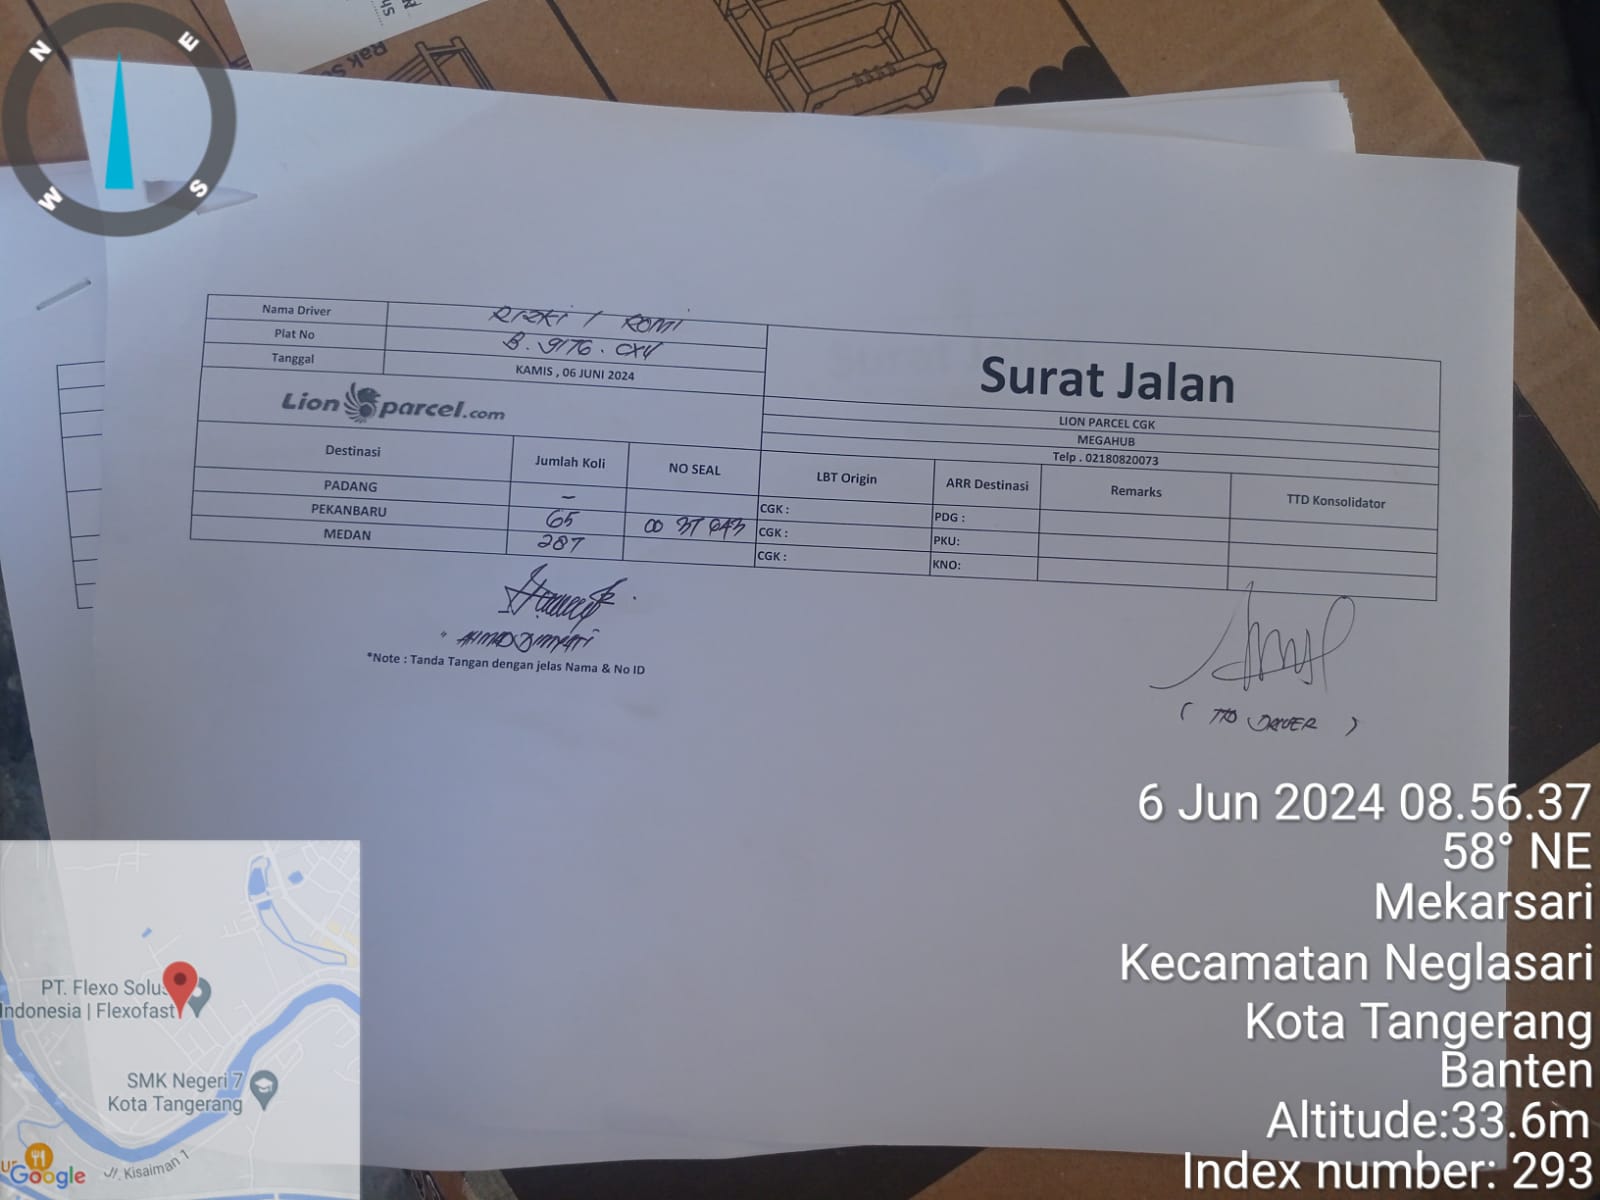 N
E
W
S
Sh
Rak S
Nama Driver RIZKI / ROMI
Plat No B. 9176. CXV
Tanggal KAMIS , 06 JUNI 2024
Surat Jalan
Lion parcel.com
LION PARCEL CGK
MEGAHUB
Telp . 02180820073
Destinasi Jumlah Koli NO SEAL LBT Origin ARR Destinasi Remarks TTD Konsolidator
PADANG – CGK : PDG :
PEKANBARU 65 00 37 643 CGK : PKU:
MEDAN 287 CGK : KNO:
*Note : Tanda Tangan dengan jelas Nama & No ID
( TTD DRIVER )
6 Jun 2024 08.56.37
58° NE
Mekarsari
Kecamatan Neglasari
Kota Tangerang
Banten
Altitude:33.6m
Index number: 293
PT. Flexo Solus
Indonesia | Flexofast
SMK Negeri 7
Kota Tangerang
Jl. Kisaiman 1
Google